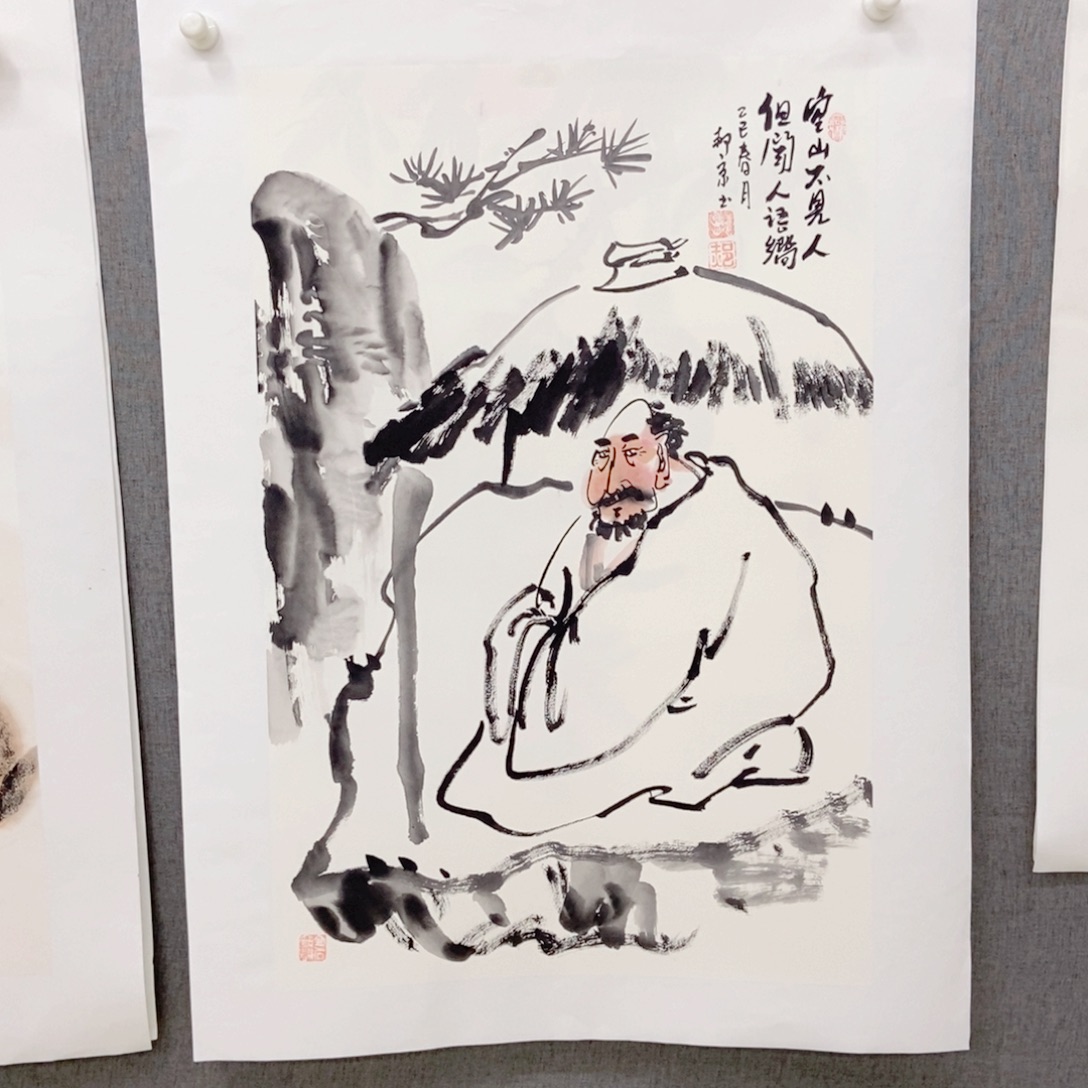 空山不見人
但聞人語響
乙巳春月